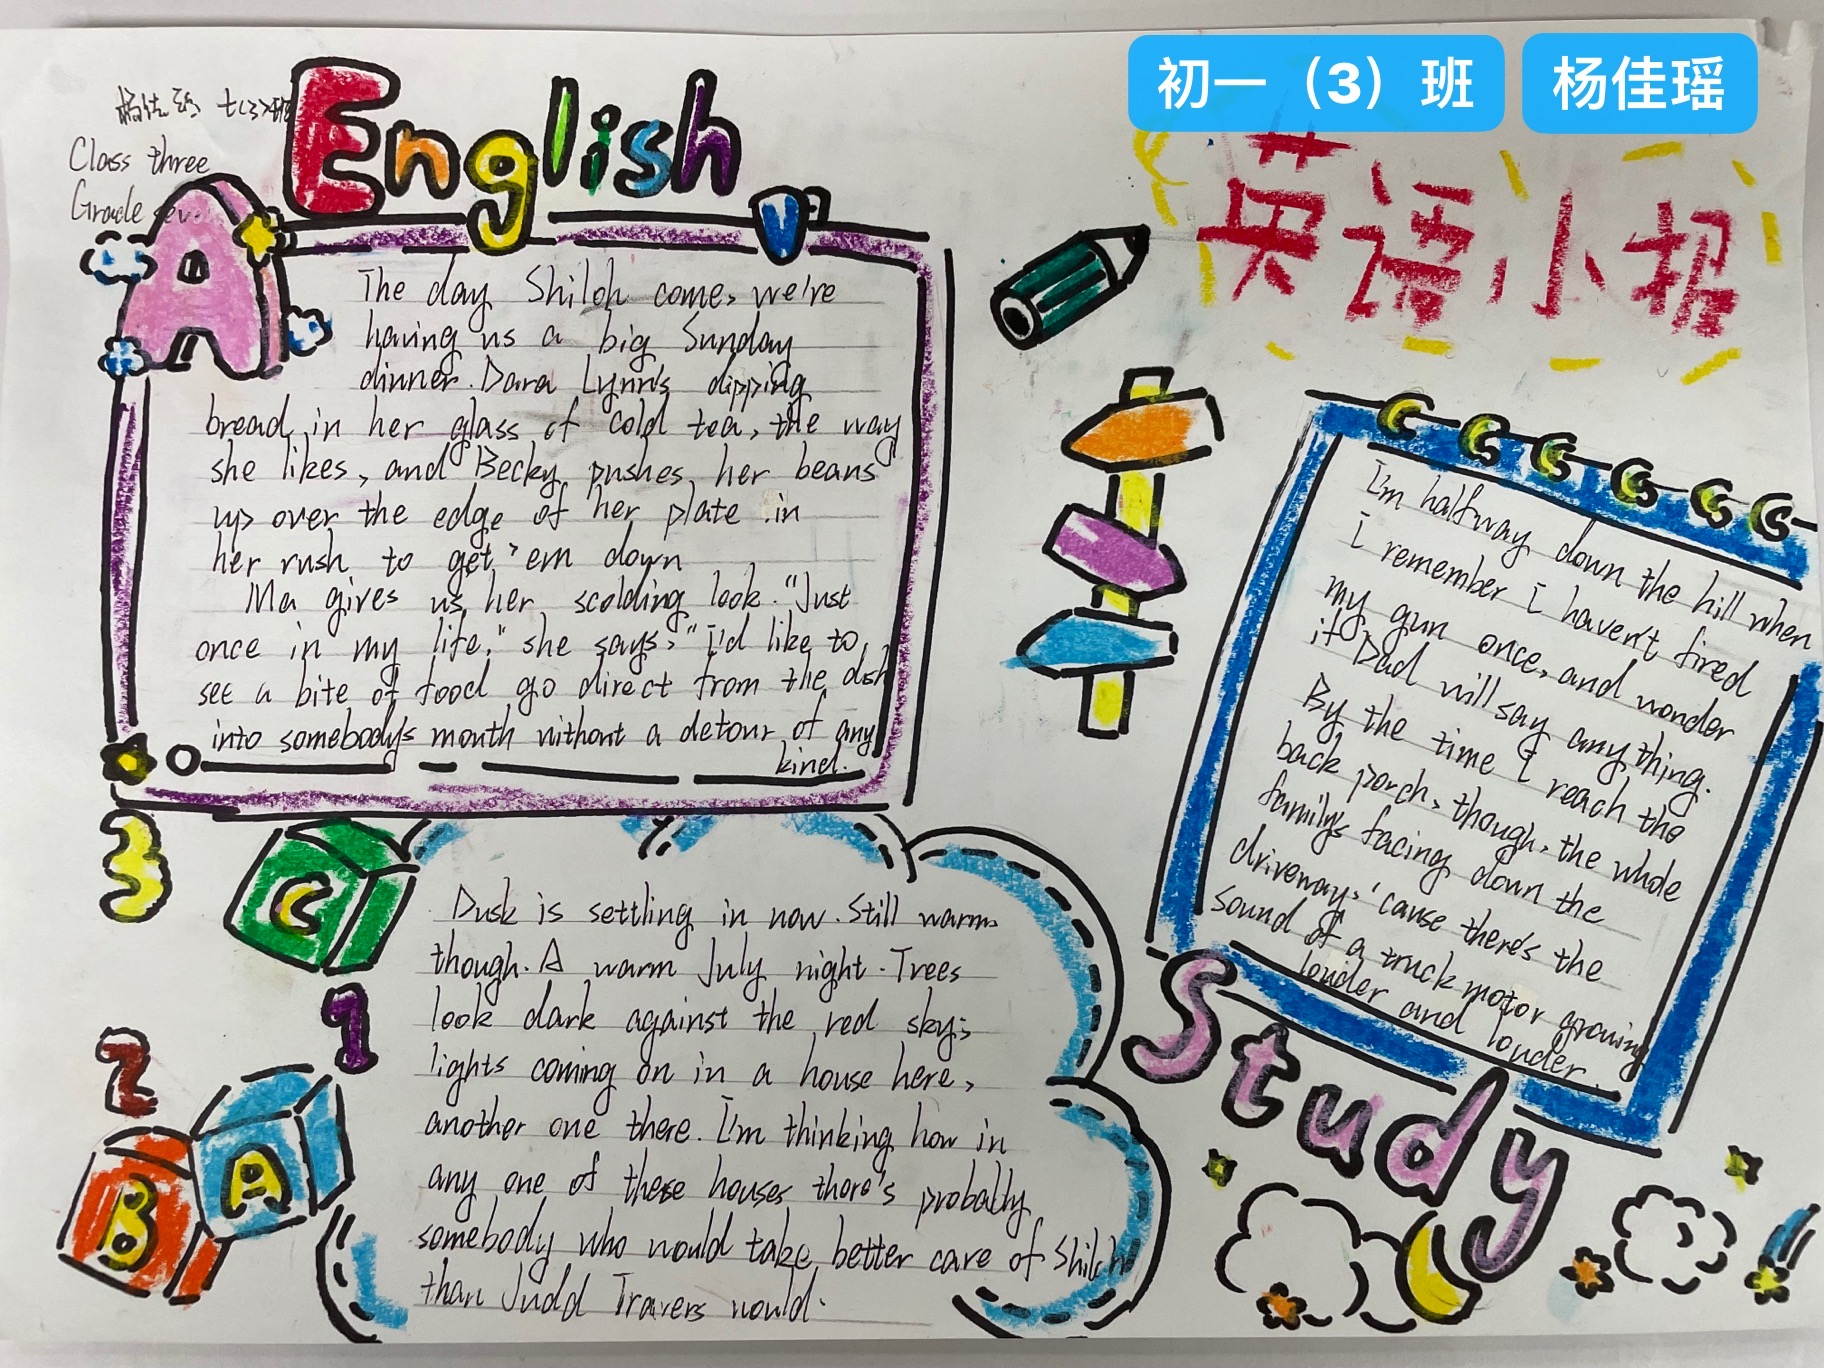 初一（3）班 杨佳瑶
杨佳瑶 七(3)班
Class three
Grade seven
English
英语小报
A
The day Shiloh come, we're
having us a big Sunday
dinner. Dara Lynn's dipping
bread in her glass of cold tea, the way
she likes, and Becky pushes her beans
up over the edge of her plate in
her rush to get 'em down
Ma gives us her scolding look. "Just
once in my life," she says, "I'd like to
see a bite of food go direct from the dish
into somebody's mouth without a detour of any
kind.
I'm halfway down the hill when
I remember I haven't fired
my gun once, and wonder
if Dad will say any thing.
By the time I reach the
back porch, though, the whole
family's facing down the
driveway, 'cause there's the
sound of a truck motor growing
louder and louder.
3
C
1
2
B
A
Dusk is settling in now. Still warm
though. A warm July night. Trees
look dark against the red sky;
lights coming on in a house here,
another one there. I'm thinking how in
any one of these houses there's probably
somebody who would take better care of Shiloh
than Judd Travers would.
Study